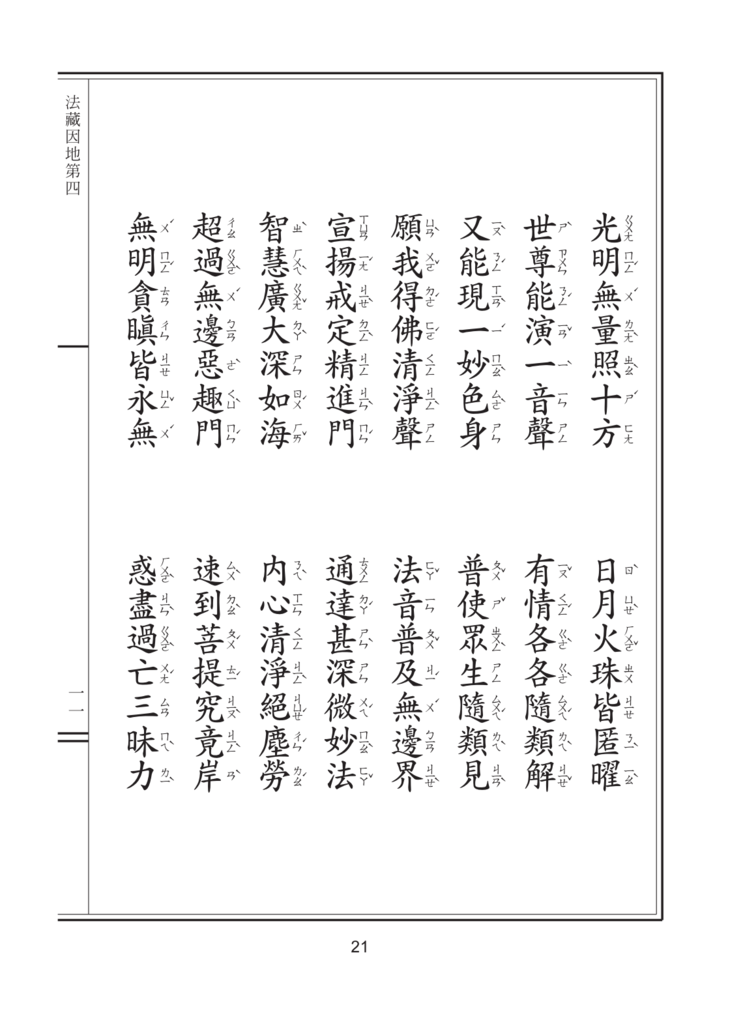 光明無量照十方　日月火珠皆匿曜
世尊能演一音聲　有情各各隨類解
又能現一妙色身　普使眾生隨類見
願我得佛清淨聲　法音普及無邊界
宣揚戒定精進門　通達甚深微妙法
智慧廣大深如海　內心清淨絕塵勞
超過無邊惡趣門　速到菩提究竟岸
無明貪瞋皆永無　惑盡過亡三昧力
法藏因地第四
一一
21